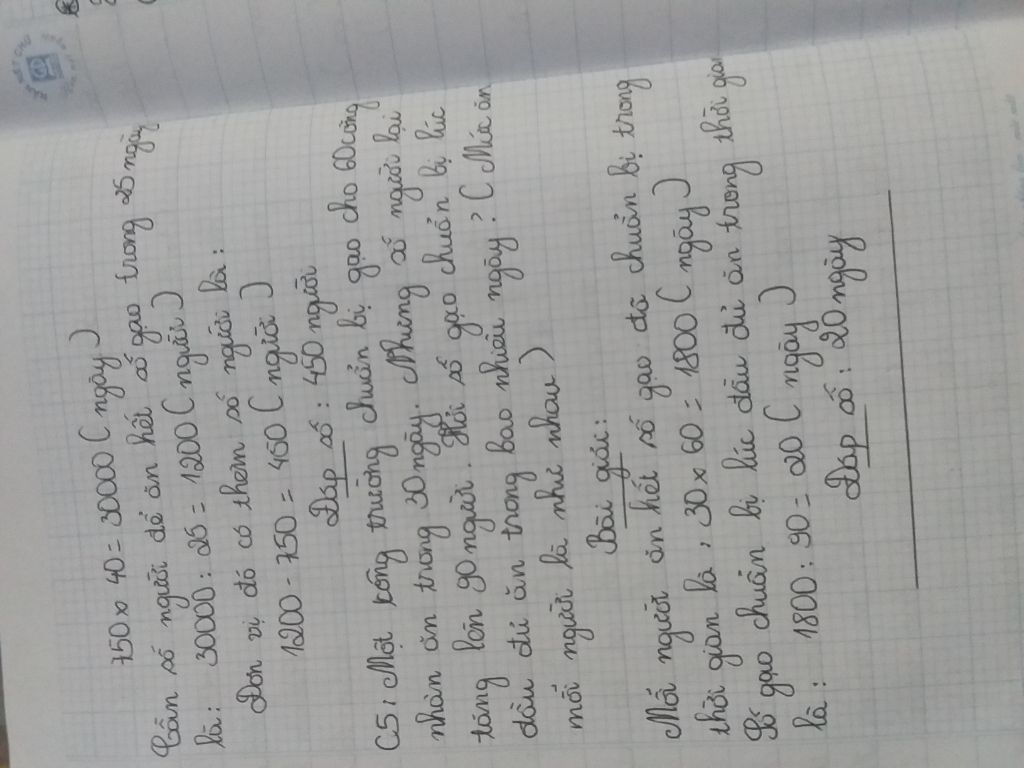 750 x 40 = 30000 (ngày)
Cần số người để ăn hết số gạo trong 25 ngày
là: 30000 : 25 = 1200 (người)
Đơn vị đó có thêm số người là:
1200 - 750 = 450 (người)
Đáp số: 450 người
C5: Một công trường chuẩn bị gạo cho 60 công
nhân ăn trong 30 ngày. Nhưng số người lại
tăng lên 90 người. Hỏi số gạo chuẩn bị lúc
đầu đủ ăn trong bao nhiêu ngày? (Mức ăn
mỗi người là như nhau)
Bài giải:
Mỗi người ăn hết số gạo đã chuẩn bị trong
thời gian là: 30 x 60 = 1800 (ngày)
Số gạo chuẩn bị lúc đầu đủ ăn trong thời gian
là: 1800 : 90 = 20 (ngày)
Đáp số: 20 ngày